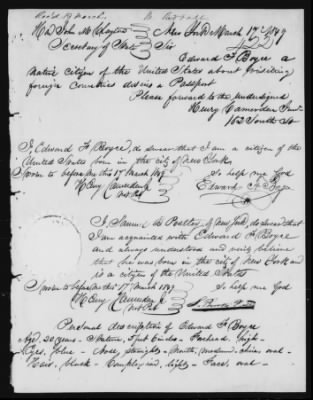 Rec'd 19 March.
Hn John M Clayton New York March 17th 1849
Secretary of State Sir
Edward F Boyce a
native citizen of the United States about visiting
foreign Countries desires a Passport
Please forward to the undersigned
Henry
162 South St
I Edward F Boyce, do swear that I am a citizen of the
United States born in the city of New York.
Sworn to before me this 17 March 1849 So help me God
Henry Edward F. Boyce
Not Pub
I, Samuel of New York, do swear that
I am acquainted with Edward F Boyce
and always understood and verily believe
that he was born in the city of New York and
is a citizen of the United States
Sworn to before me this 17 March 1849 So help me God
Henry
Not Pub
Personal description of Edward F Boyce
Aged, 20 years - Stature, 5 feet inchs - Forehead, high -
Eyes, blue - Nose, straight - Mouth, medium - Chin, oval -
Hair, black - Complexion, light - Face, oval -